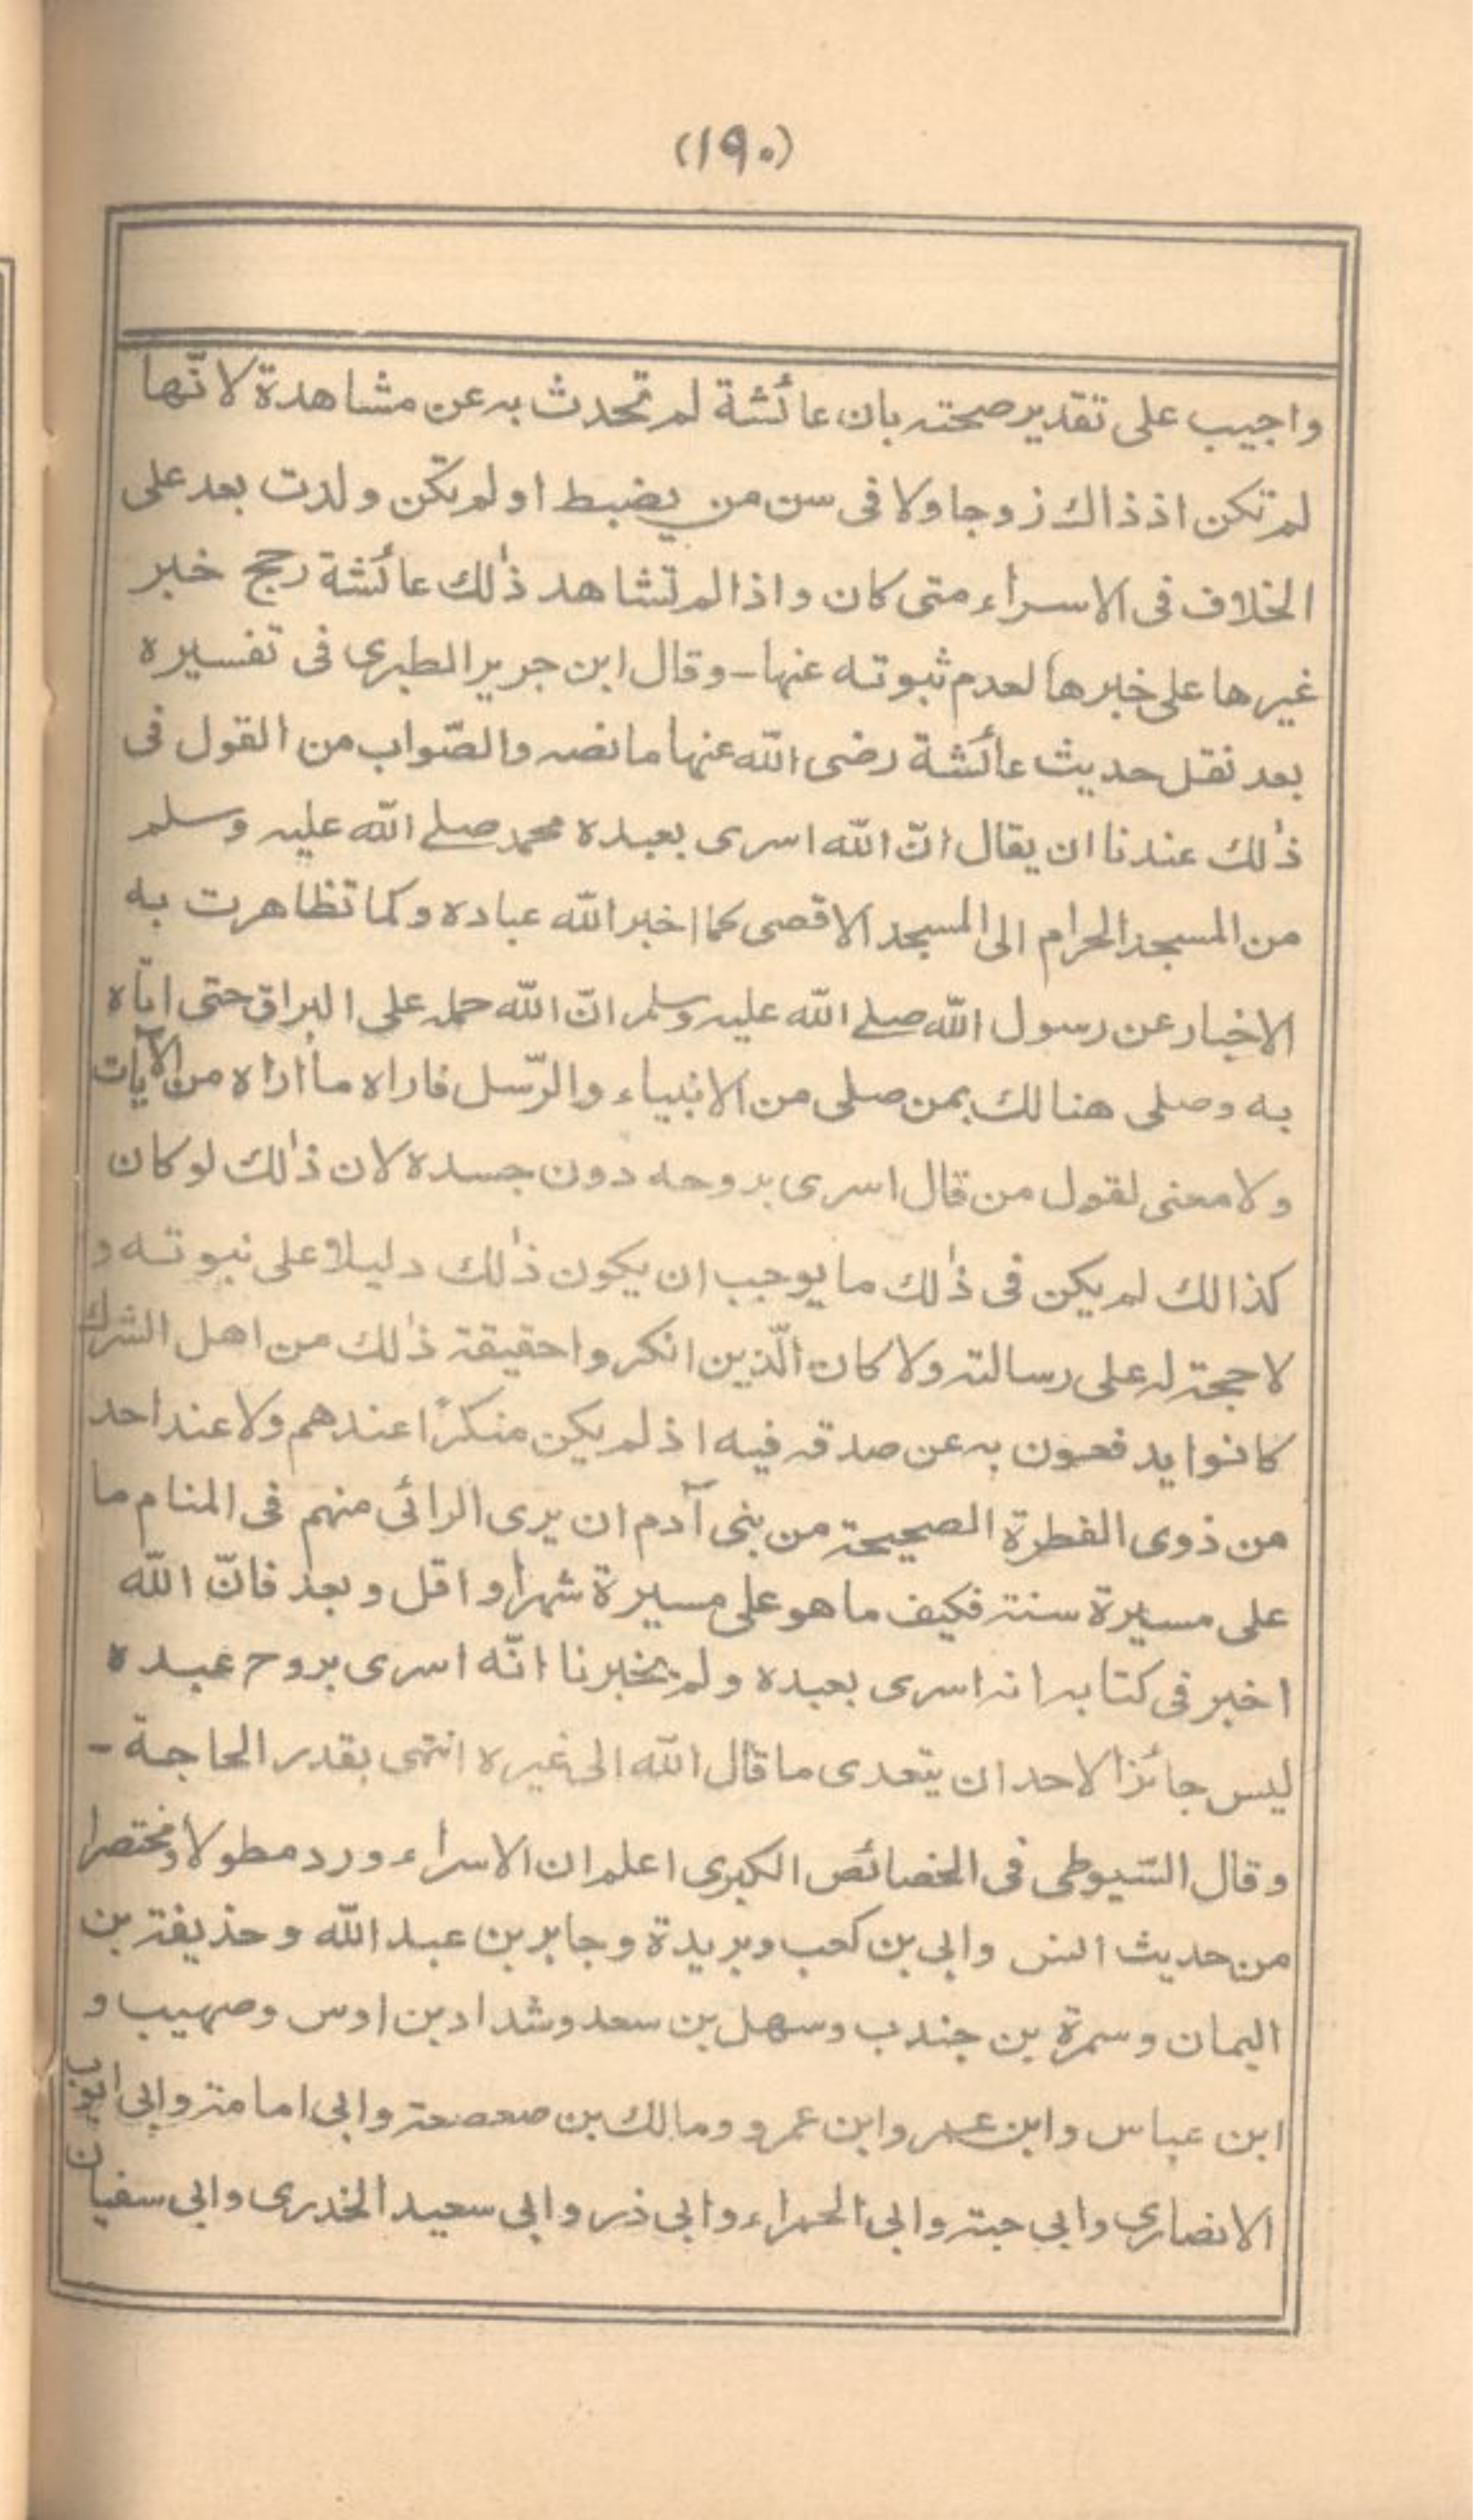 (١٩٠)
واجيب على تقدير صحته بان عائشة لم تحدث به عن مشاهدة لانّها
لم تكن اذ ذاك زوجا ولا فى سن من يضبط او لم تكن ولدت بعد على
الخلاف فى الاسراء متى كان واذا لم تشاهد ذٰلك عائشة رجح خبر
غيرها على خبرها لعدم ثبوته عنها - وقال ابن جرير الطبرى فى تفسيره
بعد نقل حديث عائشة رضى الله عنها ما نصه والصّواب من القول فى
ذٰلك عندنا ان يقال انّ الله اسرى بعبده محمد صلے الله عليه وسلم
من المسجد الحرام الى المسجد الاقصى كما اخبر الله عباده وكما تظاهرت به
الاخبار عن رسول الله صلے الله عليه وسلم انّ الله حمله على البراق حتى اتاه
به وصلى هنالك بمن صلى من الانبياء والرّسل فاراه ما أراه من الآيات
ولا معنى لقول من قال اسرى بروحه دون جسده لان ذٰلك لو كان
كذالك لم يكن فى ذٰلك ما يوجب ان يكون ذٰلك دليلا على نبوته و
لا حجة له على رسالته ولا كان الّذين انكروا حقيقة ذٰلك من اهل الشرك
كانوا يدفعون به عن صدقه فيه اذ لم يكن منكرًا عندهم ولا عند احد
من ذوى الفطرة الصحيحة من بنى آدم ان يرى الرائى منهم فى المنام ما
على مسيرة سنة فكيف ما هو على مسيرة شهر او اقل وبعد فانّ الله
اخبر فى كتابه انه اسرى بعبده ولم يخبرنا انّه اسرى بروح عبده
ليس جائزا لاحد ان يتعدى ما قال الله الى غيره انتهى بقدر الحاجة -
وقال السّيوطى فى الخصائص الكبرى اعلم ان الاسراء ورد مطولا ومختصرا
من حديث انس وابى بن كعب وبريدة وجابر بن عبد الله وحذيفة بن
اليمان وسمرة بن جندب وسهل بن سعد وشداد بن اوس وصهيب و
ابن عباس وابن عمر وابن عمرو ومالك بن صعصعة وابى امامة وابى ايوب
الانصارى وابى حبة وابى الحمراء وابى ذر وابى سعيد الخدرى وابى سفيان